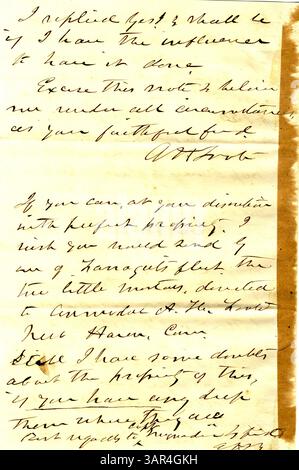 I replied Yes! & shall be
if I have the influence
to have it done
Excuse this note & believe
me under all circumstances
as your faithful friend
A H Foote
If you can, at your discretion
with perfect propriety, I
wish you would send by
one of Farragut's fleet, the
two little mortars, directed
to Commodore A. H. Foote
New Haven, Conn.
Still I have some doubts
about the propriety of this,
if you have any keep
them where they are
Best regards to
alamy
Image ID: 2AR4GKH
www.alamy.com